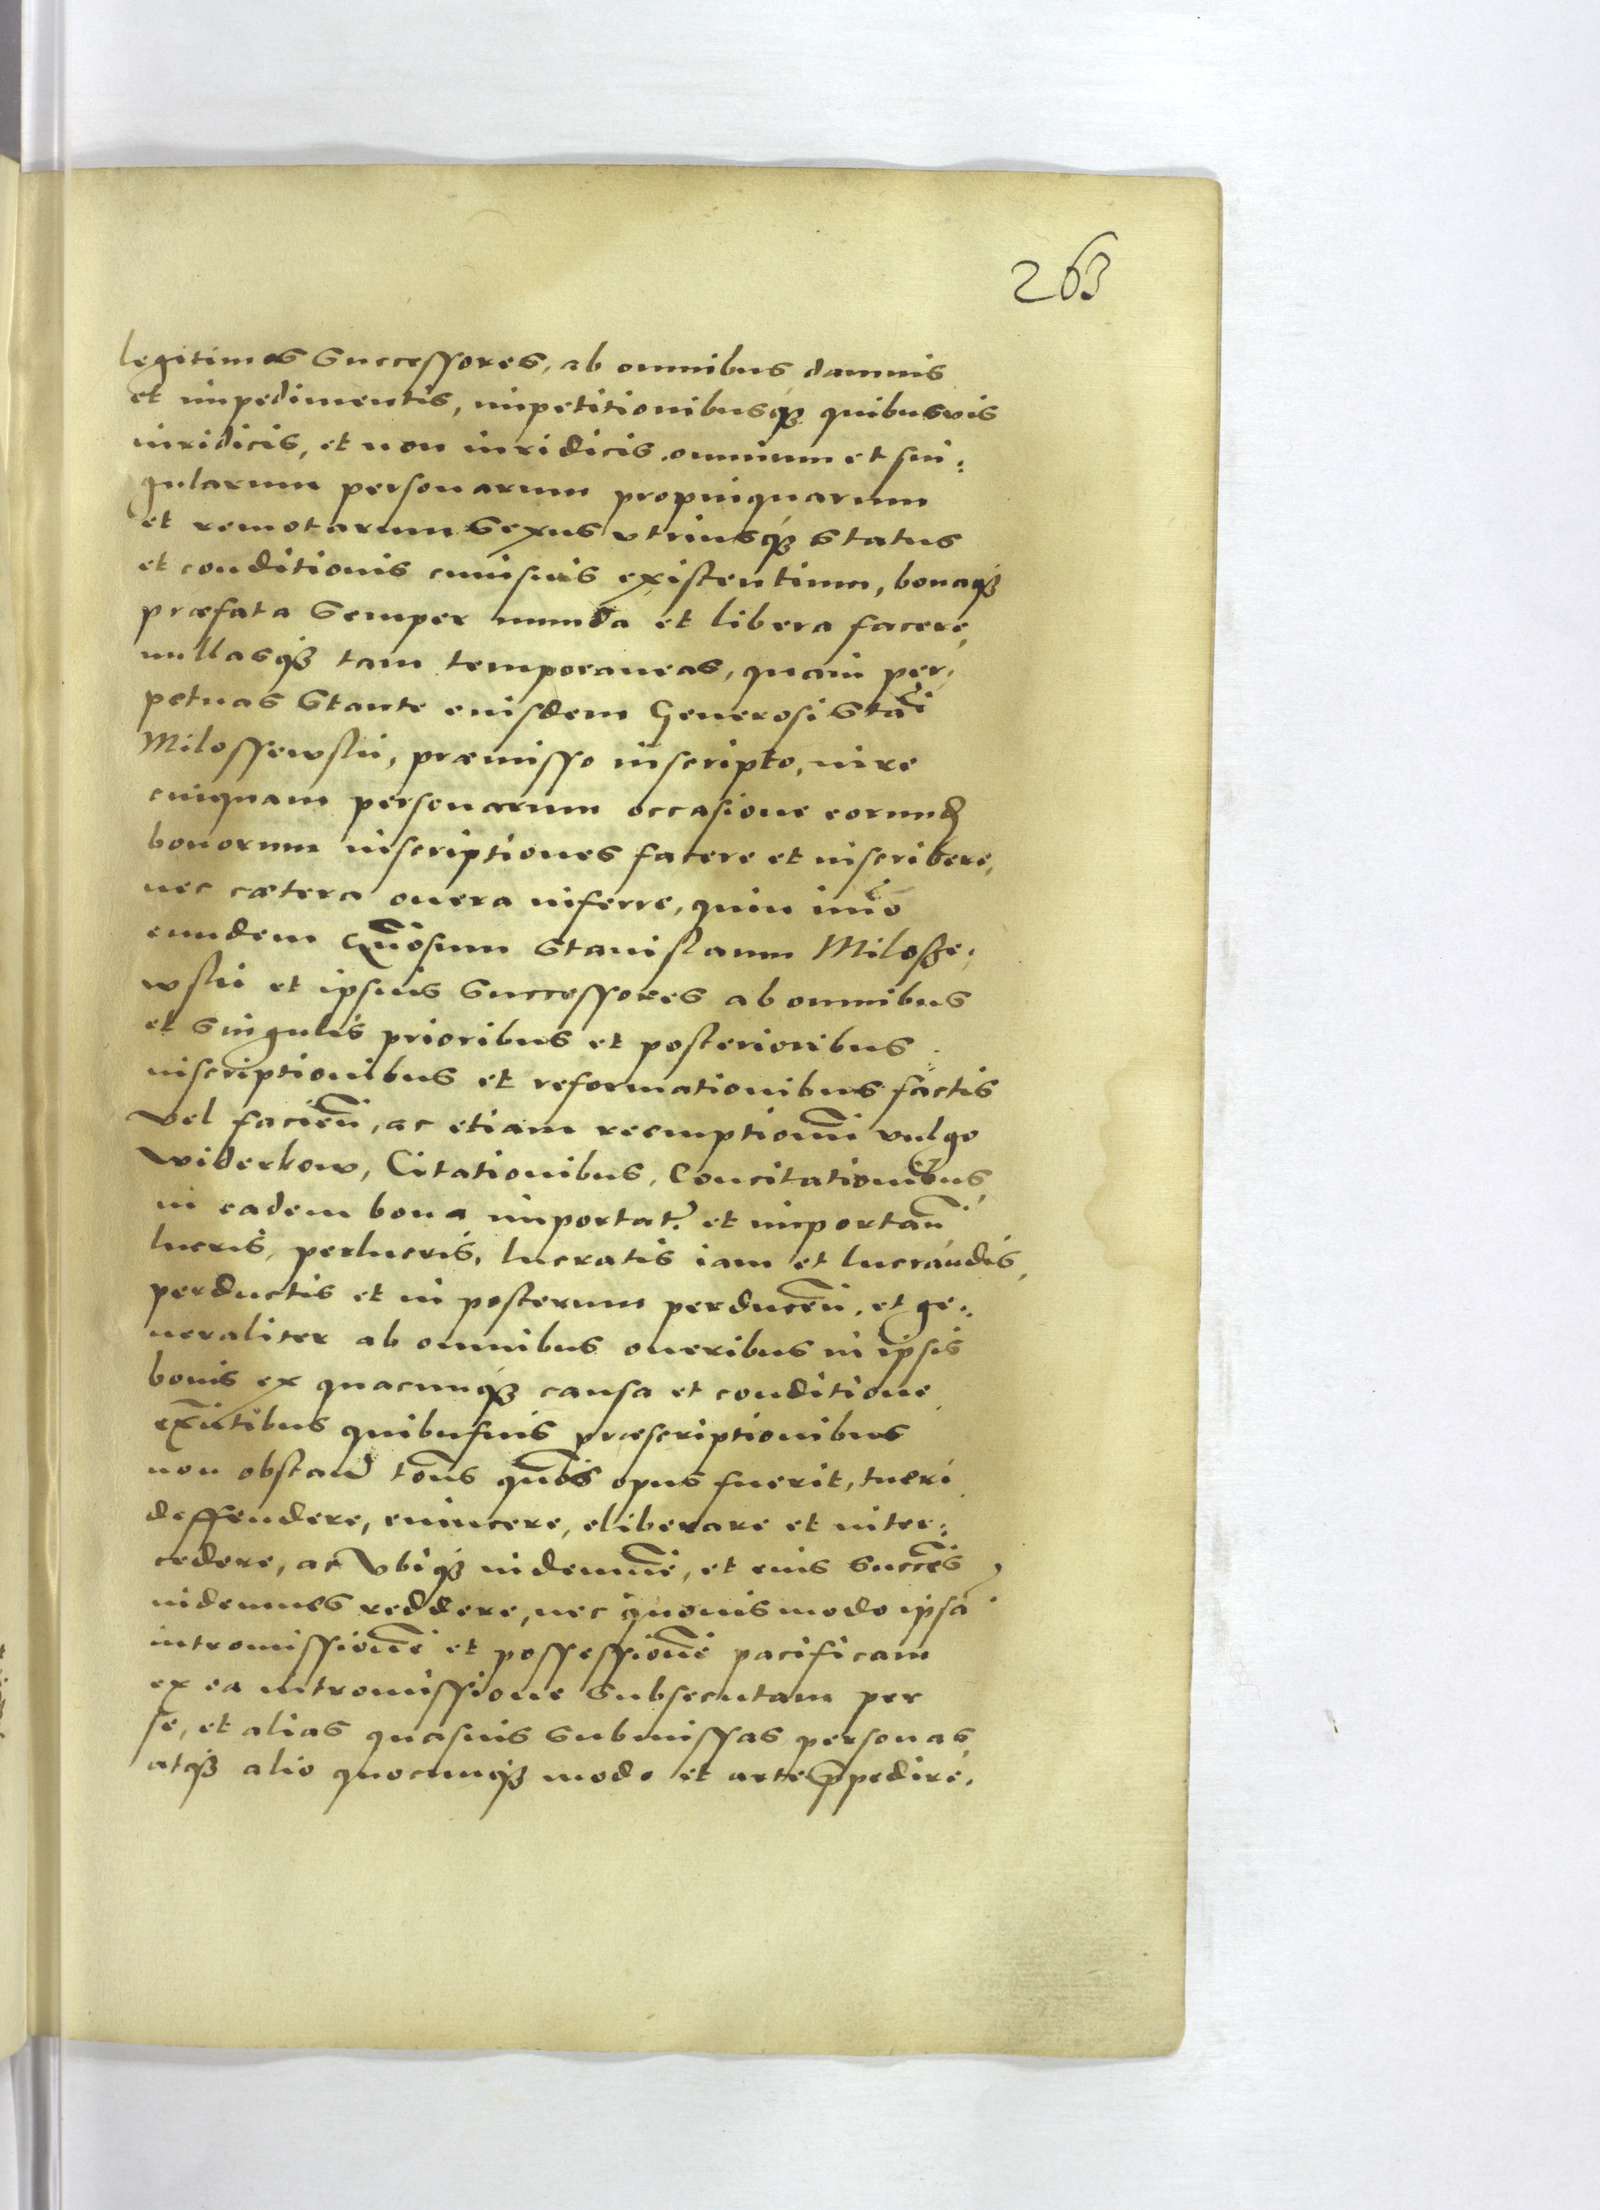 263
legitimos Successores, ab omnibus damnis
et impedimentis, impetitionibusq3 quibusvis
iuridicis, et non iuridicis omnium et sin:
gularum personarum propinquarum
et remotarum Sexus vtriusq3 Status
et conditionis cuiusuis existentium, bonaq3
præfata Semper munda et libera facere,
nullasq3 tam temporaneas, quam per,
petuas Stante eiusdem Generosi Stãi
Milossewskii, præmisso inscripto, iure
cuiquam personarum occasione eorund
bonorum inscriptiones facere et inscribere,
nec cætera onera inferre, quin imo
eundem Gñosum Stanislaum Milosze,
wskii et ipsius Successores ab omnibus
et Singulis prioribus et posterioribus
inscriptionibus et reformationibus factis
Vel facieñ, ac etiam reemptionũ vulgo
widerkow, Citationibus, Concitationibus,
in eadem bona importat: et importañ
lucris, perlucris, lucratis iam et lucrandis,
perductis et in posterum perduceñ, et ge:
neraliter ab omnibus oneribus in ipsis
bonis ex quacunq3 causa et conditione
exñtibus quibusuis præscriptionibus
non obstañ tõns quõns opus fuerit, tueri
deffendere, euincere, eliberare et inter:
cedere, ac Vbiq3 indemñe, et eius Success
indemnes reddere, nec quouismodo ipsã
intromissioñe et possessioñe pacificam
ex ea intromissione Subsecutam per
se, et alias quasuis submissas personas
atq3 alio quocunq3 modo et arte p̃pedire,